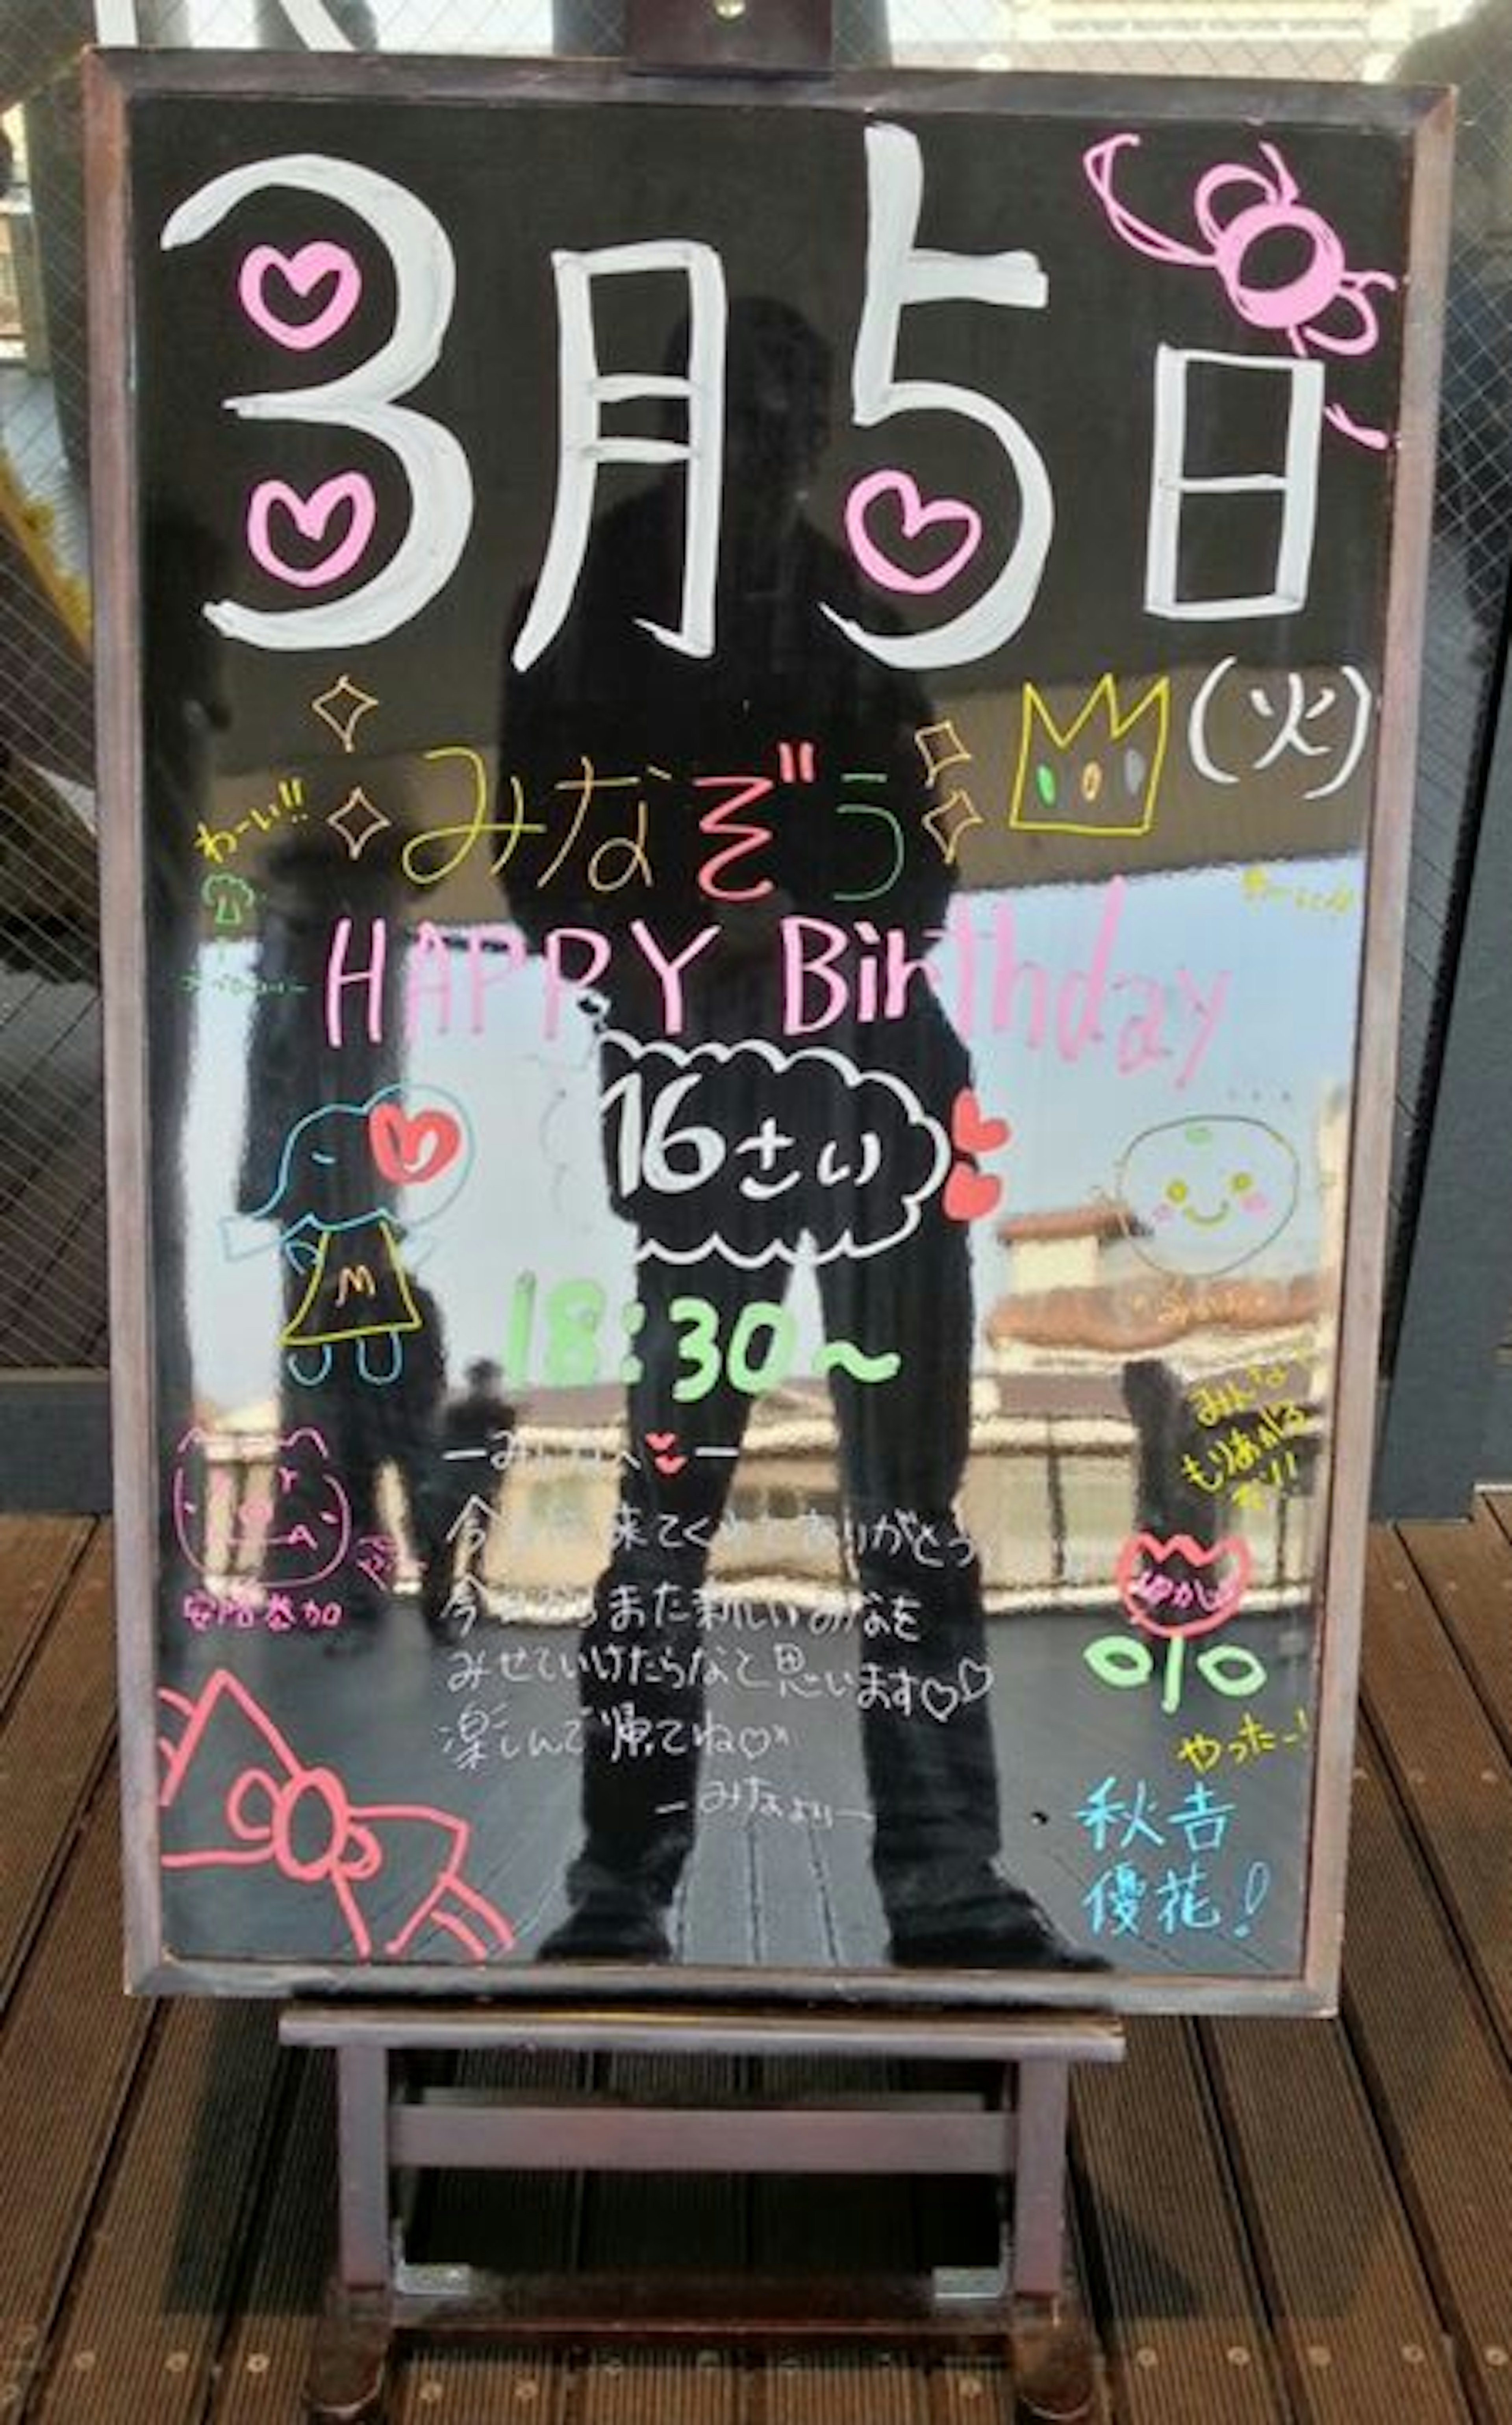 3月5日
(火)
わーい!!
みなぞう
HAPPY Birthday
16さい
M
18:30~
みんな
もりあがる
ーみ へー
今 来てく ありがとう
今 らまた新しいみなを
みせていけたらなと思います♡♡
楽しんで帰てね♡
ーみなよりー
ゆか
やったー!
秋吉
優花!